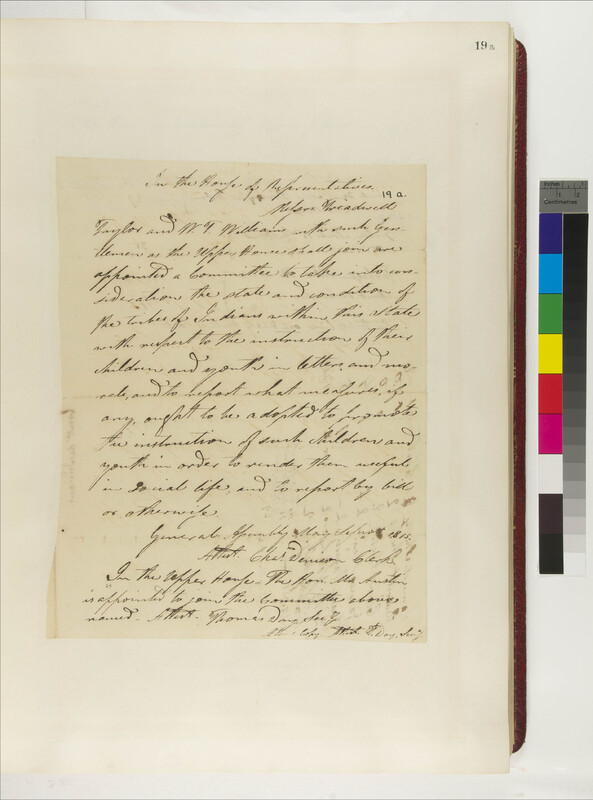 19 a
In the House of Representatives,
19 a.
Treadwell
Taylor and W T Williams with such Gen-
tlemen as the Upper House shall join are
appointed a Committee to take into con-
sideration the state and condition of
the tribes of Indians within this State
with respect to the instruction of their
children and youth in letters, and mo-
rals, and to report what measures, if
any, ought to be adopted to promote
the instruction of such children and
youth in order to render them useful
in social life, and to report by bill
or otherwise
General Assembly May Session
Attest. Chas. Denison Clerk
In the Upper House - The Hon. Mr Austin
is appointed to join the Committee above
named - Attest - Thomas Day Secy
Copy Attest Day, Secy
Inches 1 2
Centimetres